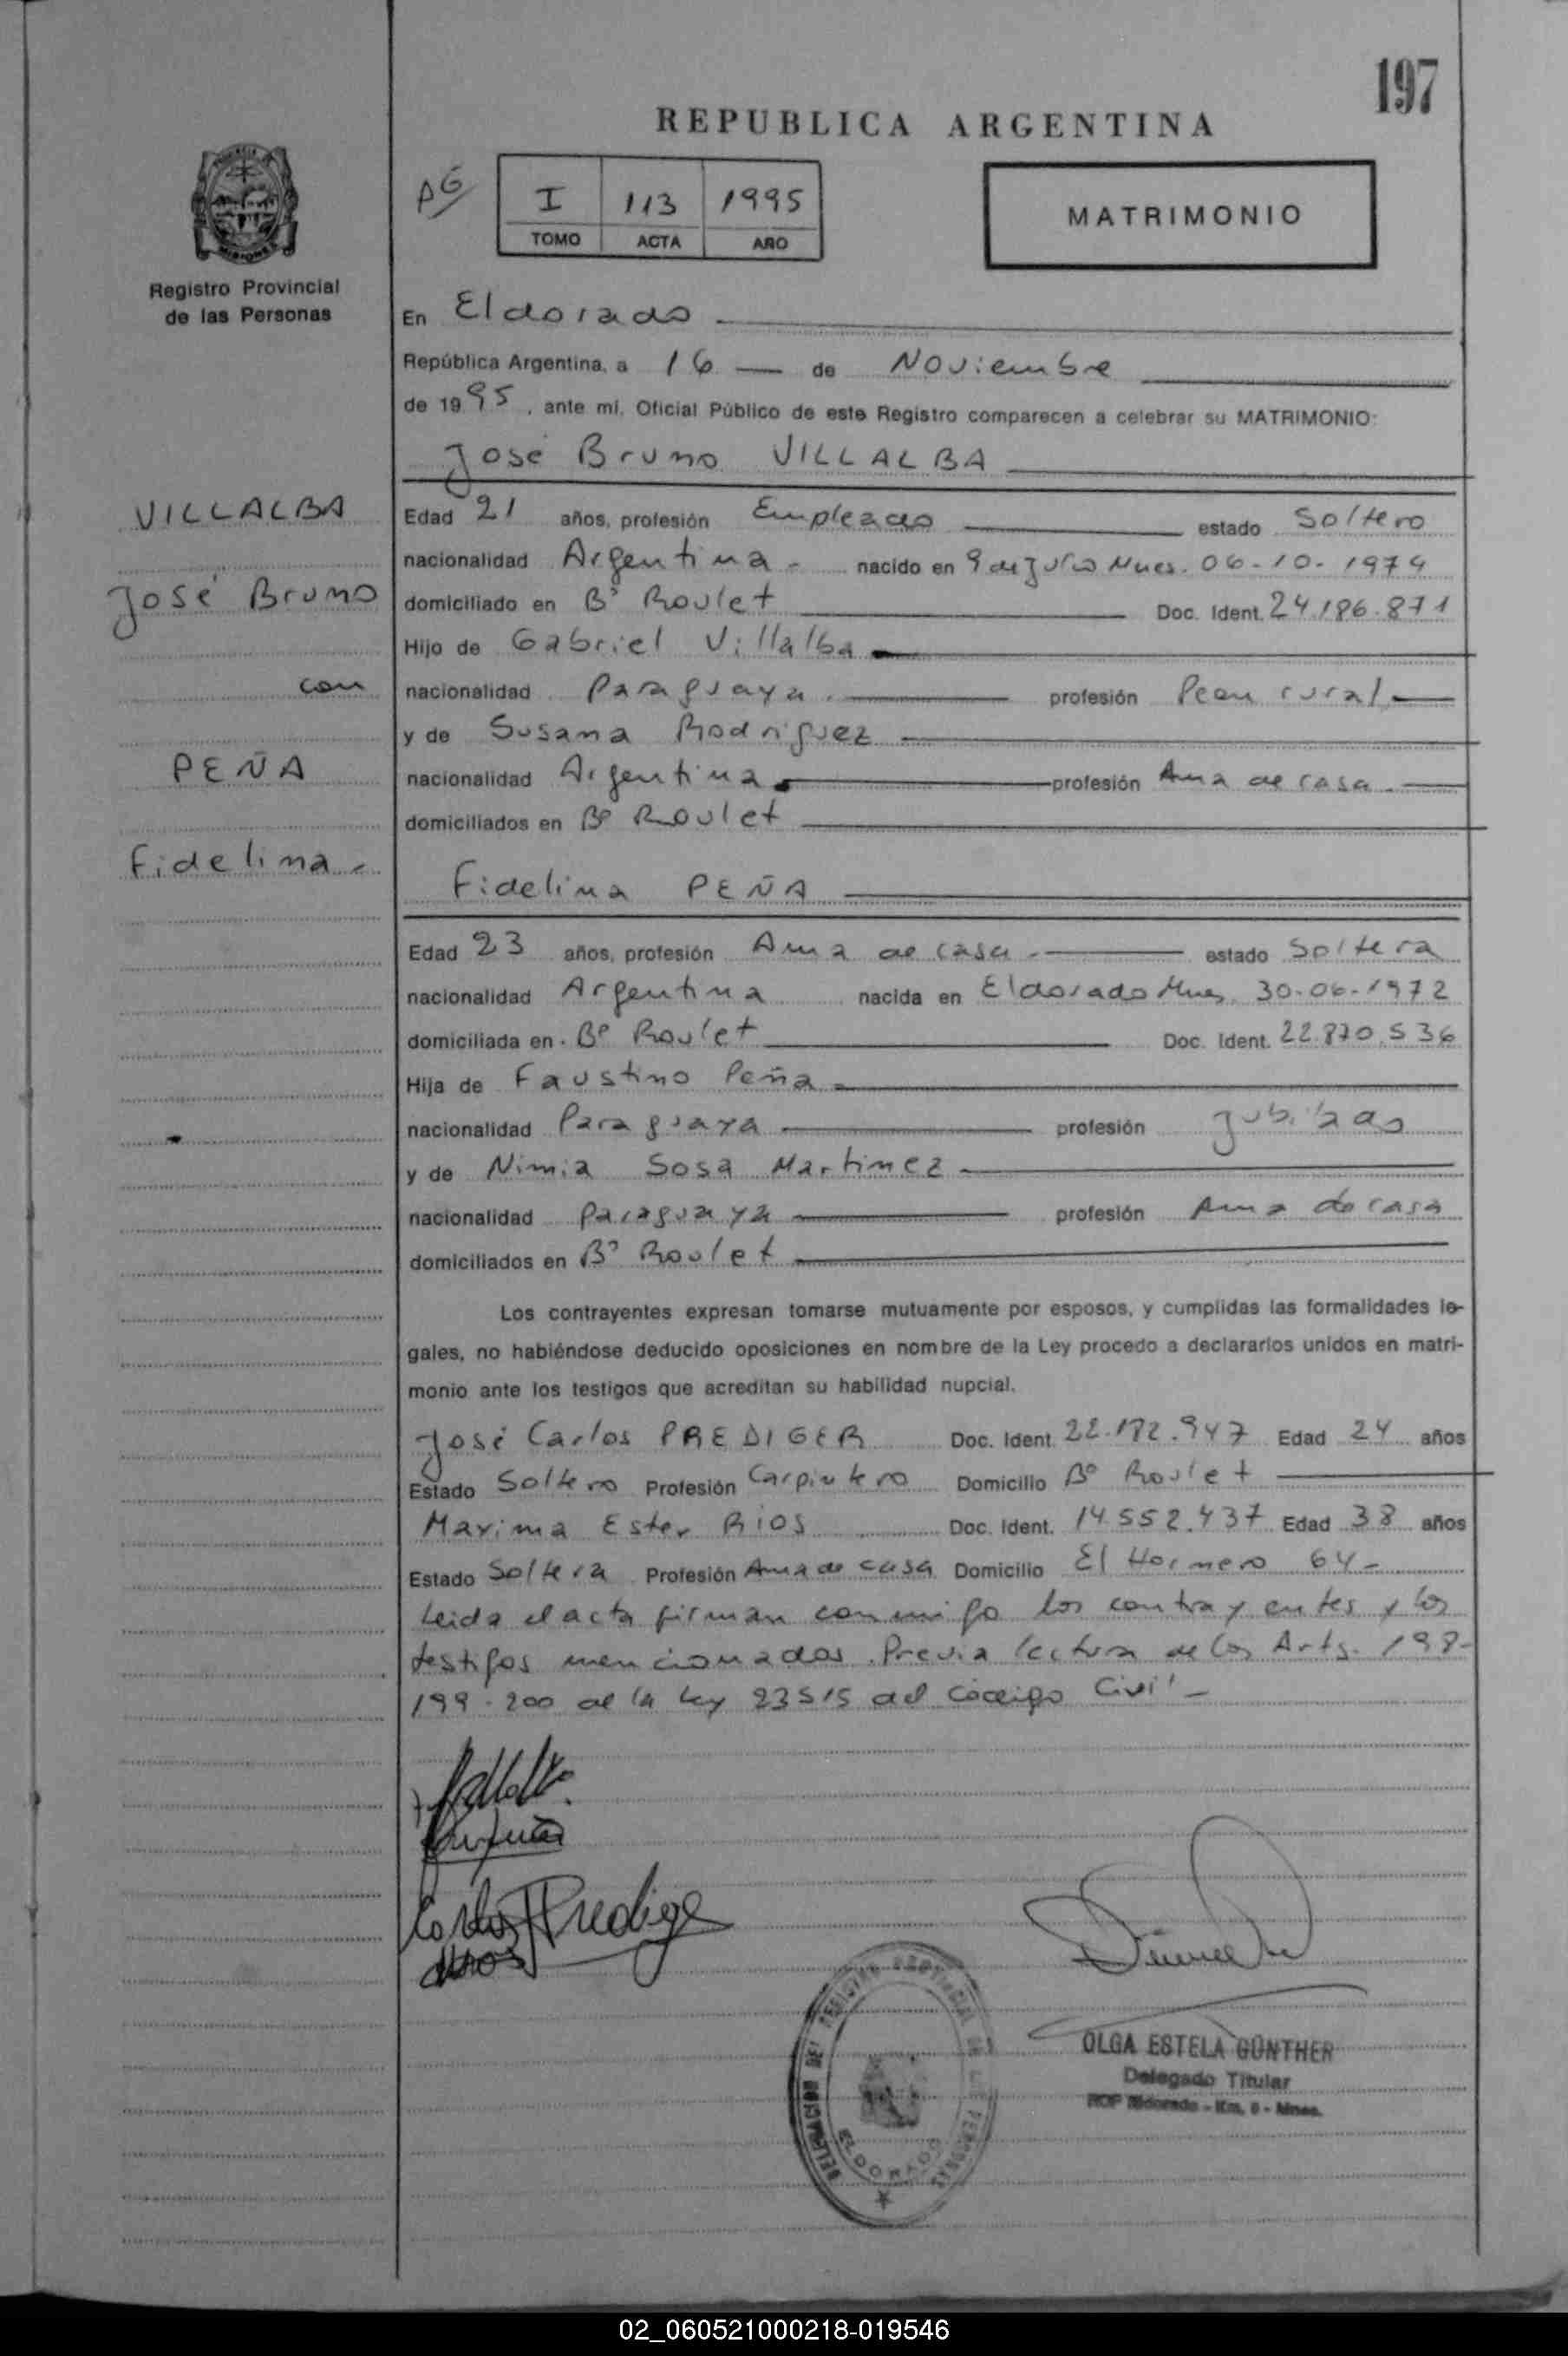 197
REPUBLICA ARGENTINA
I 113 1995
TOMO ACTA AÑO
MATRIMONIO
Registro Provincial
de las Personas
En Eldorado
República Argentina, a 16 de Noviembre
de 1995, ante mi, Oficial Público de este Registro comparecen a celebrar su MATRIMONIO:
José Bruno VILLALBA
VILLALBA
José Bruno
con
PEÑA
Fidelina
Edad 21 años, profesión Empleado estado Soltero
nacionalidad Argentina nacido en 9 de Julio Mnes. 06-10-1974
domiciliado en Bº Roulet Doc. Ident. 24.186.871
Hijo de Gabriel Villalba
nacionalidad Paraguaya profesión Peon rural
y de Susana Rodriguez
nacionalidad Argentina profesión Ama de casa
domiciliados en Bº Roulet
Fidelina PEÑA
Edad 23 años, profesión Ama de casa estado Soltera
nacionalidad Argentina nacida en Eldorado Mnes 30-06-1972
domiciliada en Bº Roulet Doc. Ident. 22.870.536
Hija de Faustino Peña
nacionalidad Paraguaya profesión Jubilado
y de Nimia Sosa Martinez
nacionalidad Paraguaya profesión Ama de casa
domiciliados en Bº Roulet
Los contrayentes expresan tomarse mutuamente por esposos, y cumplidas las formalidades le-
gales, no habiéndose deducido oposiciones en nombre de la Ley procedo a declararlos unidos en matri-
monio ante los testigos que acreditan su habilidad nupcial.
José Carlos PREDIGER Doc. Ident. 22.172.947 Edad 24 años
Estado Soltero Profesión Carpintero Domicilio Bº Roulet
Maxima Ester RIOS Doc. Ident. 14.552.437 Edad 38 años
Estado Soltera Profesión Ama de casa Domicilio El Hornero 64-
Leida el acta firman conmigo los contrayentes y los
testigos mencionados. Previa lectura de los Arts. 198-
199-200 de la Ley 23515 del Código Civil-
Carlos Prediger
DELEGACION DEL REGISTRO PROVINCIAL DE LAS PERSONAS
ELDORADO
OLGA ESTELA GÜNTHER
Delegado Titular
02_060521000218-019546